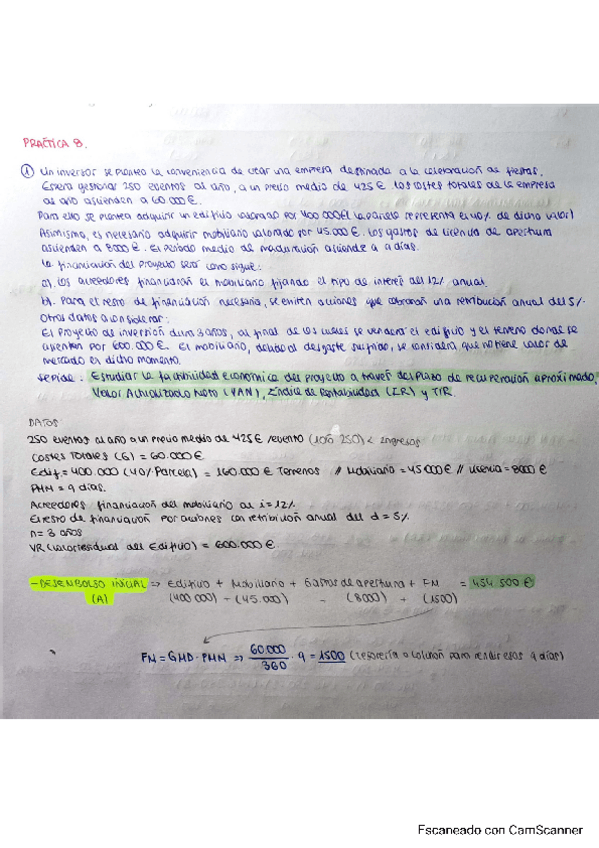 PRACTICA 8.
① Un inversor se plantea la conveniencia de crear una empresa destinada a la celebración de fiestas.
Espera gestionar 250 eventos al año, a un precio medio de 425€. Los costes totales de la empresa
al año ascienden a 60.000€.
Para ello se plantea adquirir un edificio valorado por 400.000€ (la parcela representa el 40% de dicho valor)
Asimismo, es necesario adquirir mobiliario valorado por 45.000€. Los gastos de licencia de apertura
ascienden a 8000€. El Período medio de maduración asciende a 9 días.
La financiación del Proyecto será como sigue:
a). Los acreedores financiarán el mobiliario fijando el tipo de interés del 12% anual.
b). Para el resto de financiación necesaria, se emiten acciones que cobrarán una retribución anual del 5%.
Otros datos a considerar:
El Proyecto de inversión dura 3 años, al final de los cuales se venderá el edificio y el terreno donde se
por 600.000€. El mobiliario, debido al desgaste sufrido, se considera que no tiene valor de
mercado en dicho momento.
se pide: Estudiar la factibilidad económica del proyecto a través del Plazo de recuperación aproximado,
Valor Actualizado Neto (VAN), Índice de Rentabilidad (IR) y TIR.
DATOS
250 eventos al año a un Precio medio de 425€/evento < Ingresos
Costes Totales (G) = 60.000€
Edif = 400.000 (40% Parcela) = 160.000€ Terrenos // Mobiliario = 45000€ // Licencia = 8000€
PMM = 9 días.
Acreedores financiación del mobiliario al i=12%
El resto de financiación por acciones con retribución anual del d = 5%
n= 3 años
VR (valor residual del Edificio) = 600.000€
-DESEMBOLSO INICIAL => Edificio + Mobiliario + Gastos de apertura + FM = 454.500€
(A) (400.000) - (45.000) - (8000) + (1500)
FM = GMD · PMM => 60.000/360 · 9 = 1500 (tesorería o colchón para 9 días)
Escaneado con CamScanner